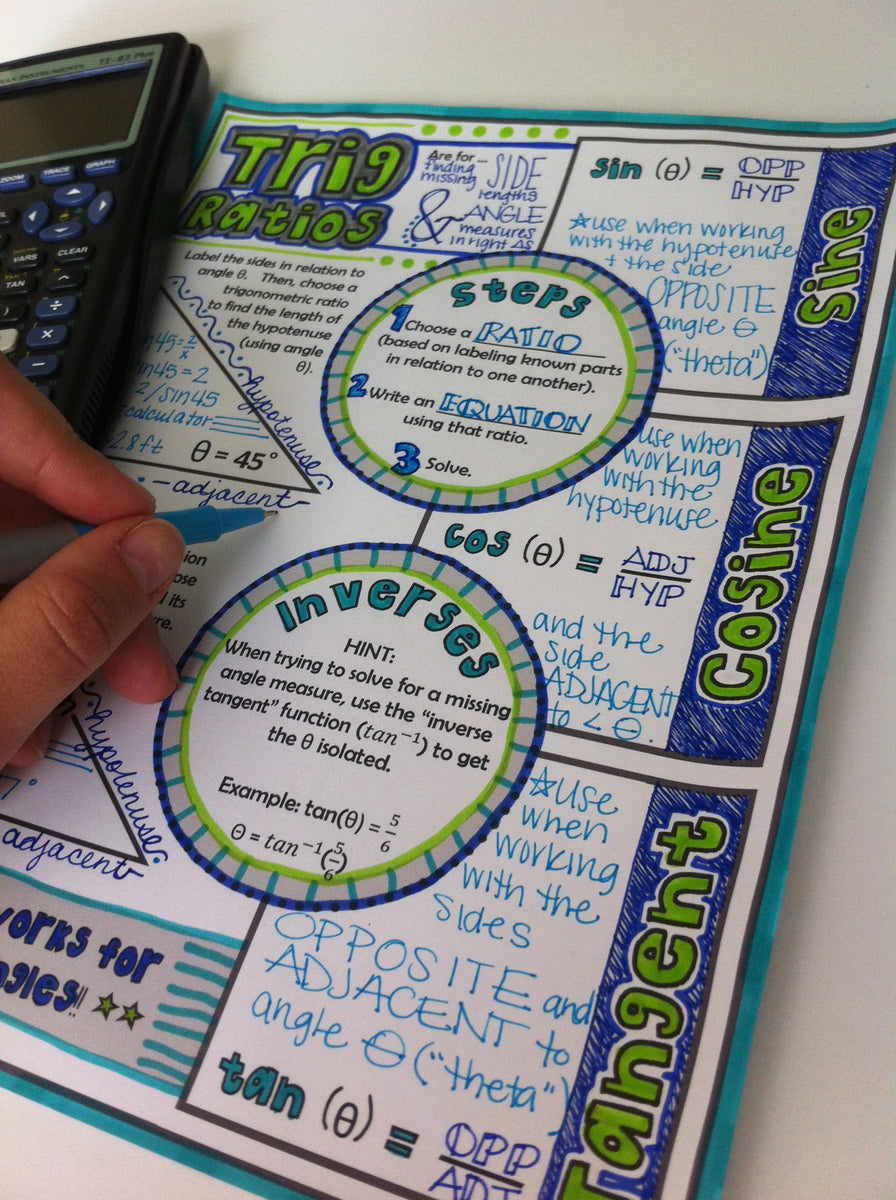 TI-83 Plus
ZOOM
TRACE
GRAPH
VARS
CLEAR
TAN
Trig
Ratios
Are for...
finding
missing
SIDE
lengths
& ANGLE
measures
in right Δs
Label the sides in relation to
angle θ. Then, choose a
trigonometric ratio
to find the length of
the hypotenuse
(using angle
θ).
45=2/x
45=2
2/sin45
calculator
2.8ft
θ = 45°
hypotenuse
adjacent
Steps
1 Choose a RATIO
(based on labeling known parts
in relation to one another).
2 Write an EQUATION
using that ratio.
3 Solve.
sin (θ) = OPP/HYP
☆use when working
with the hypotenuse
+ the side
OPPOSITE
angle θ
("theta")
Sine
use when
working
with the
hypotenuse
cos (θ) = ADJ/HYP
and the
side
ADJACENT
to < θ.
Cosine
Inverses
HINT:
When trying to solve for a missing
angle measure, use the "inverse
tangent" function (tan⁻¹) to get
the θ isolated.
Example: tan(θ) = 5/6
θ = tan⁻¹(5/6)
hypotenuse
adjacent
works for
!! ☆☆
☆use
when
working
with the
sides
OPPOSITE and
ADJACENT to
angle θ ("theta")
tan (θ) = OPP/ADJ
Tangent